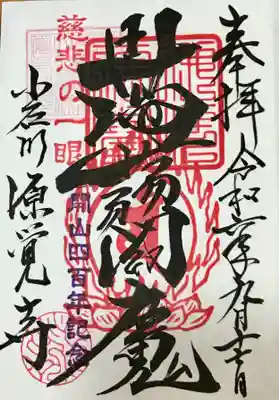 奉拝 令和六年九月十七日
閻魔
慈悲の一眼
開山四百年記念
小石川 源覚寺